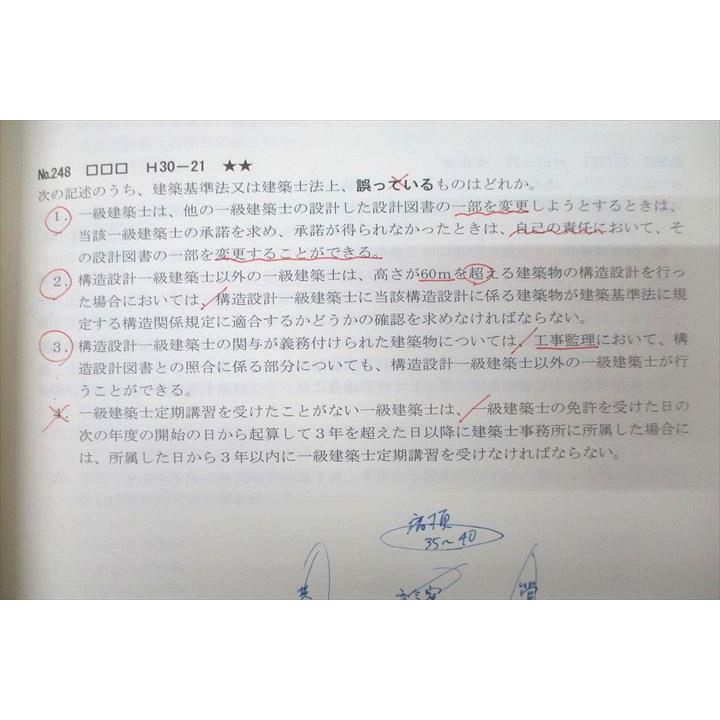 No.248 □□□ H30－21 ★★
次の記述のうち、建築基準法又は建築士法上、誤っているものはどれか。
1．一級建築士は、他の一級建築士の設計した設計図書の一部を変更しようとするときは、
当該一級建築士の承諾を求め、承諾が得られなかったときは、自己の責任において、そ
の設計図書の一部を変更することができる。
2．構造設計一級建築士以外の一級建築士は、高さが60ｍを超える建築物の構造設計を行っ
た場合においては、構造設計一級建築士に当該構造設計に係る建築物が建築基準法に規
定する構造関係規定に適合するかどうかの確認を求めなければならない。
3．構造設計一級建築士の関与が義務付けられた建築物については、工事監理において、構
造設計図書との照合に係る部分についても、構造設計一級建築士以外の一級建築士が行
うことができる。
4．一級建築士定期講習を受けたことがない一級建築士は、一級建築士の免許を受けた日の
次の年度の開始の日から起算して３年を超えた日以降に建築士事務所に所属した場合に
は、所属した日から３年以内に一級建築士定期講習を受けなければならない。
35～40